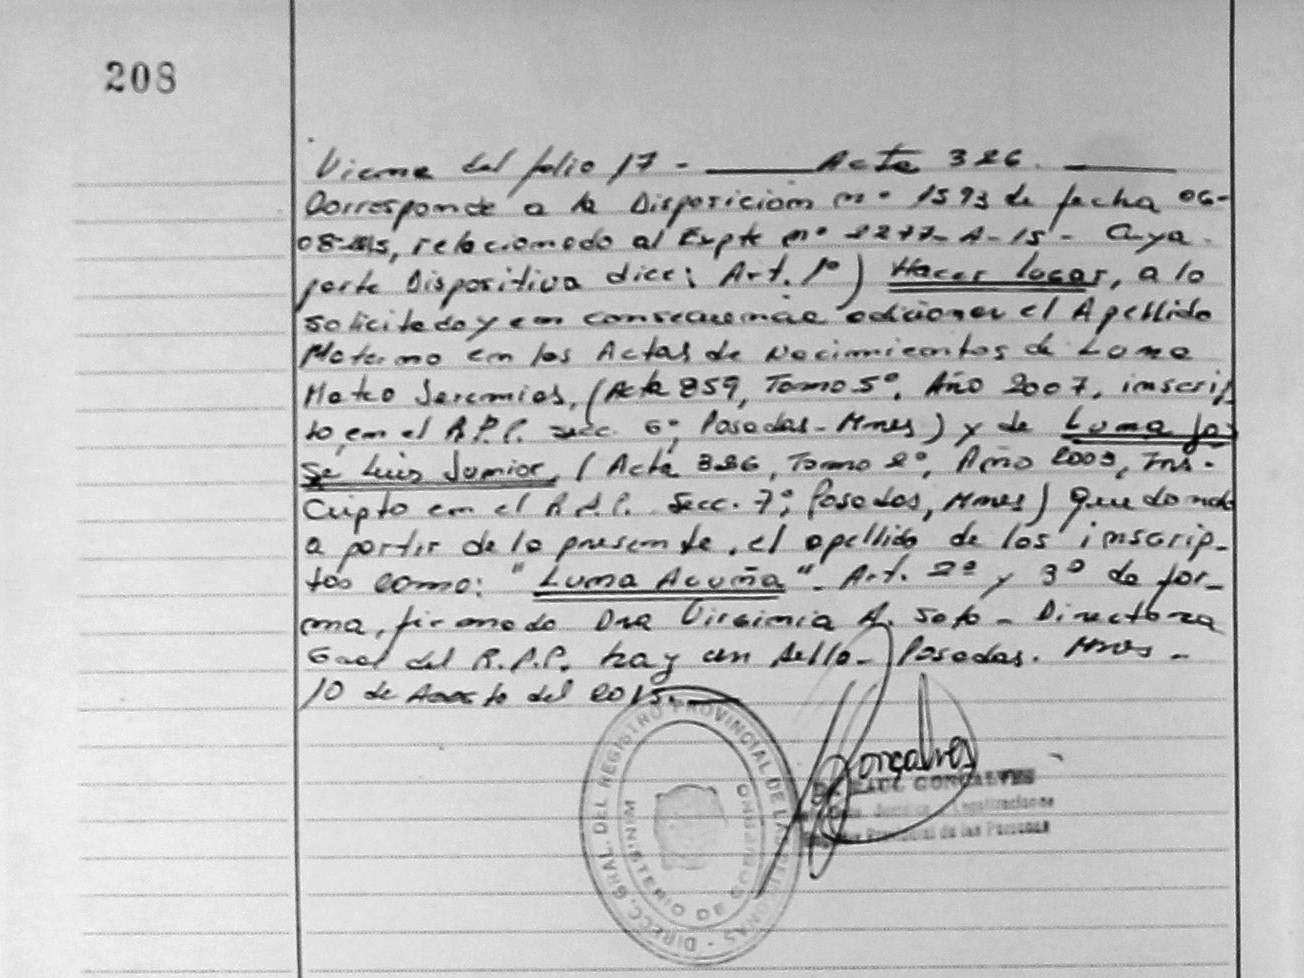 208
Viene del folio 17 - Acta 326.
Corresponde a la Disposición nº 1593 de fecha 06-
08-2015, relacionado al Expte nº 2277-A-15- Cuya
parte Dispositiva dice: Art. 1º) Hacer lugar, a lo
solicitado y en consecuencia adicionar el Apellido
Materno en las Actas de Nacimientos de Luna
Mateo Jeremias, (Acta 859, Tomo 5º, Año 2007, inscrip
to, en el R.P.P. secc. 6º, Posadas-Mnes) y de Luna Jo
sé Luis Junior, (Acta 326, Tomo 2º, Año 2009, Ins-
cripto en el R.P.P. Secc. 7º, Posadas, Mnes) Quedando
a partir de la presente, el apellido de los inscrip-
tos como: "Luna Acuña". Art. 2º y 3º de for-
ma, firmado Dra Virginia A. Soto - Directora
Gral del R.P.P. hay un sello- Posadas. Mnes -
10 de Agosto del 2015.
Gonçalves
Dr. RAUL GONÇALVES
Legalizaciones
Provincial de las Personas
DIRECC. GRAL. DEL REGISTRO PROVINCIAL DE LAS PERSONAS
MINISTERIO DE GOBIERNO